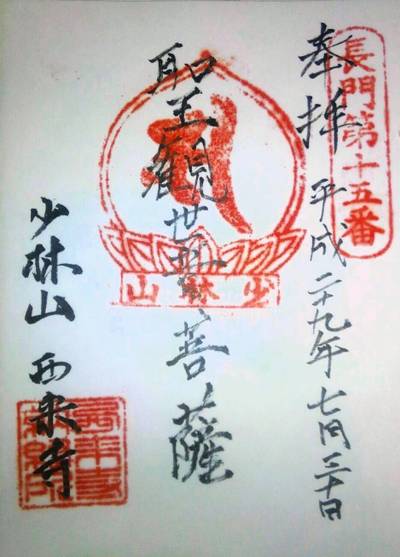 長門第十五番
奉拝 平成二十九年七月三十日
聖観世音菩薩
少林山
少林山 西来寺